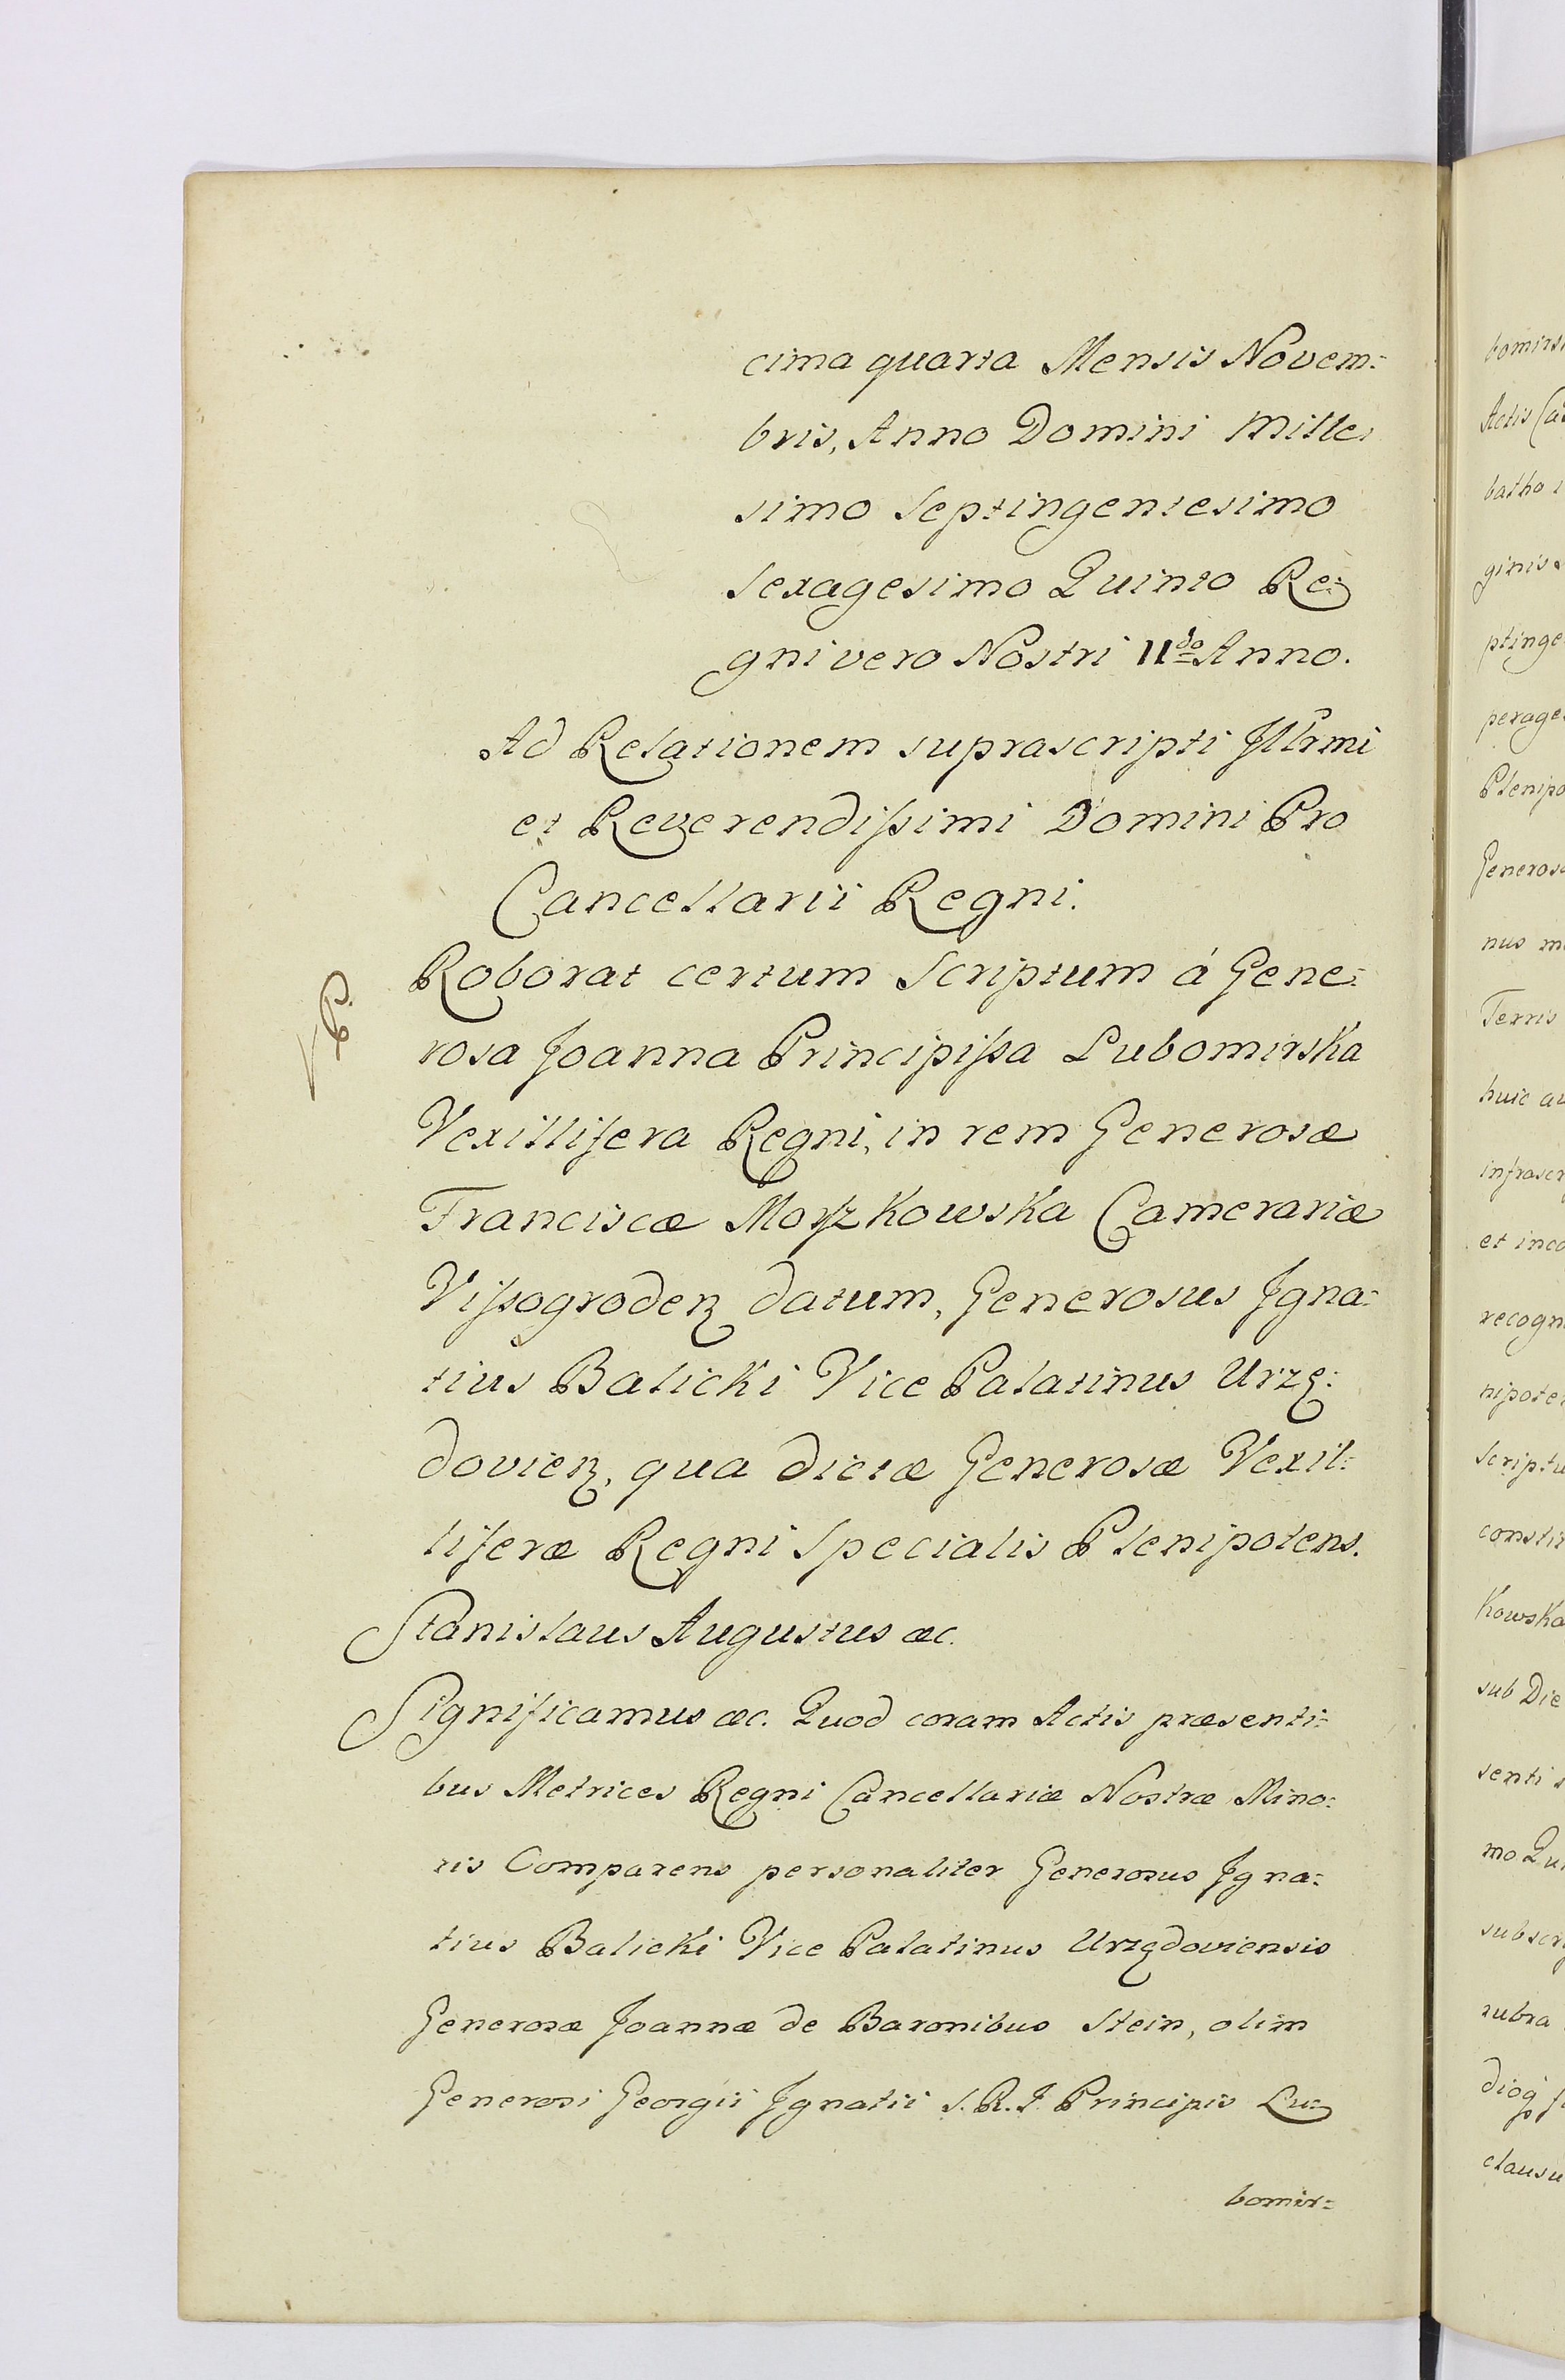 cima quarta Mensis Novem:
bris, Anno Domini Mille,
simo Septingentesimo
Sexagesimo Quinto Re:
gni vero Nostri IIdo Anno.
Ad Relationem suprascripti Jllrmi
et Reverendißimi Domini Pro
Cancellarii Regni.
Roborat certum Scriptum á Gene:
rosa Joanna Principißa Lubomirska
Vexillifera Regni, in rem Generosæ
Franciscæ Morßkowska Camerariæ
Vißogrodeñ datum, Generosus Jgna:
tius Balicki Vice Palatinus Urzę:
dovieñ, qua dictæ Generosæ Vexil:
liferæ Regni Specialis Plenipotens.
Stanislaus Augustus æc.
Significamus æc. Quod coram Actis præsenti:
bus Metrices Regni Cancellariæ Nostræ Mino:
ris Comparens personaliter Generosus Jgna:
tius Balicki Vice Palatinus Urzędoviensis
Generosæ Joannæ de Baronibus Stein, olim
Generosi Georgii Jgnatii S. R. J. Principis Lu:
bomir=
ginis
ptinge
perage
Plenipo
Generosa
Terris
et inco
recogn
nipote
Scriptu
Kowska
sub Die
senti
mo Qu
rubra
clausu